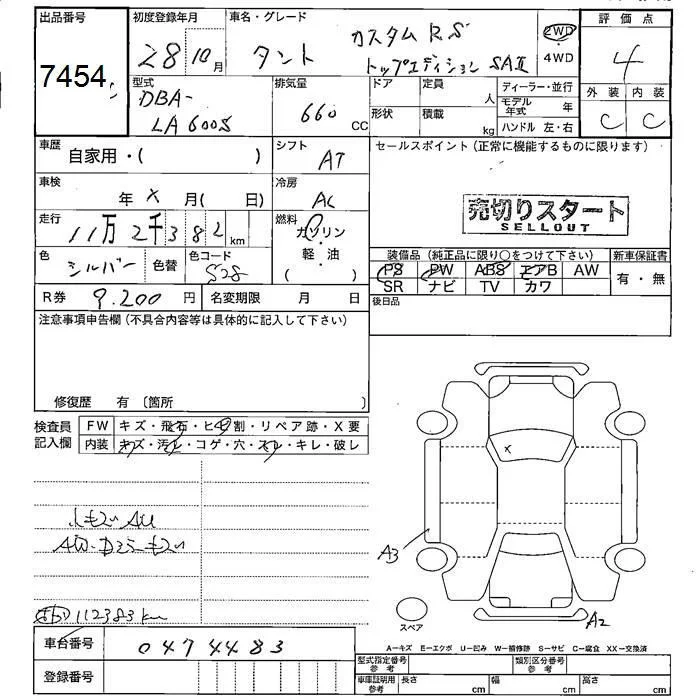 出品番号
7454
初度登録年月
28 10月
車名・グレード
タント
カスタム RS
トップエディション SAⅡ
2WD
・
4WD
評価点
4
外装 内装
C C
型式
DBA-
LA600S
排気量
660 CC
ドア 定員 人
形状 積載 kg
ディーラー・並行
モデル年式 年
ハンドル 左・右
車歴
自家用・( )
シフト
AT
セールスポイント(正常に機能するものに限ります)
売切りスタート
SELLOUT
車検
年 X 月( 日)
冷房
AC
走行
11万2千382 km
燃料
ガソリン
・
軽・油
( )
色
シルバー
色替
色コード
S28
装備品(純正品に限り○をつけて下さい)
PS PW ABS エアB AW
SR ナビ TV カワ
新車保証書
有・無
R券 9.200 円
名変期限 月 日
後日品
注意事項申告欄(不具合内容等は具体的に記入して下さい)
修復歴 有〔箇所 〕
検査員
記入欄
FW キズ・飛石・ヒ割・リペア跡・X要
内装 キズ・汚レ・コゲ・穴・スレ・キレ・破レ
X
A3
A2
スペア
112383km
車台番号 0474483
登録番号
A−キズ E−エクボ U−凹み W−補修跡 S−サビ C−腐食 XX−交換済
型式指定番号
参考
類別区分番号
参考
車庫証明用
参考
長さ cm 幅 cm 高さ cm